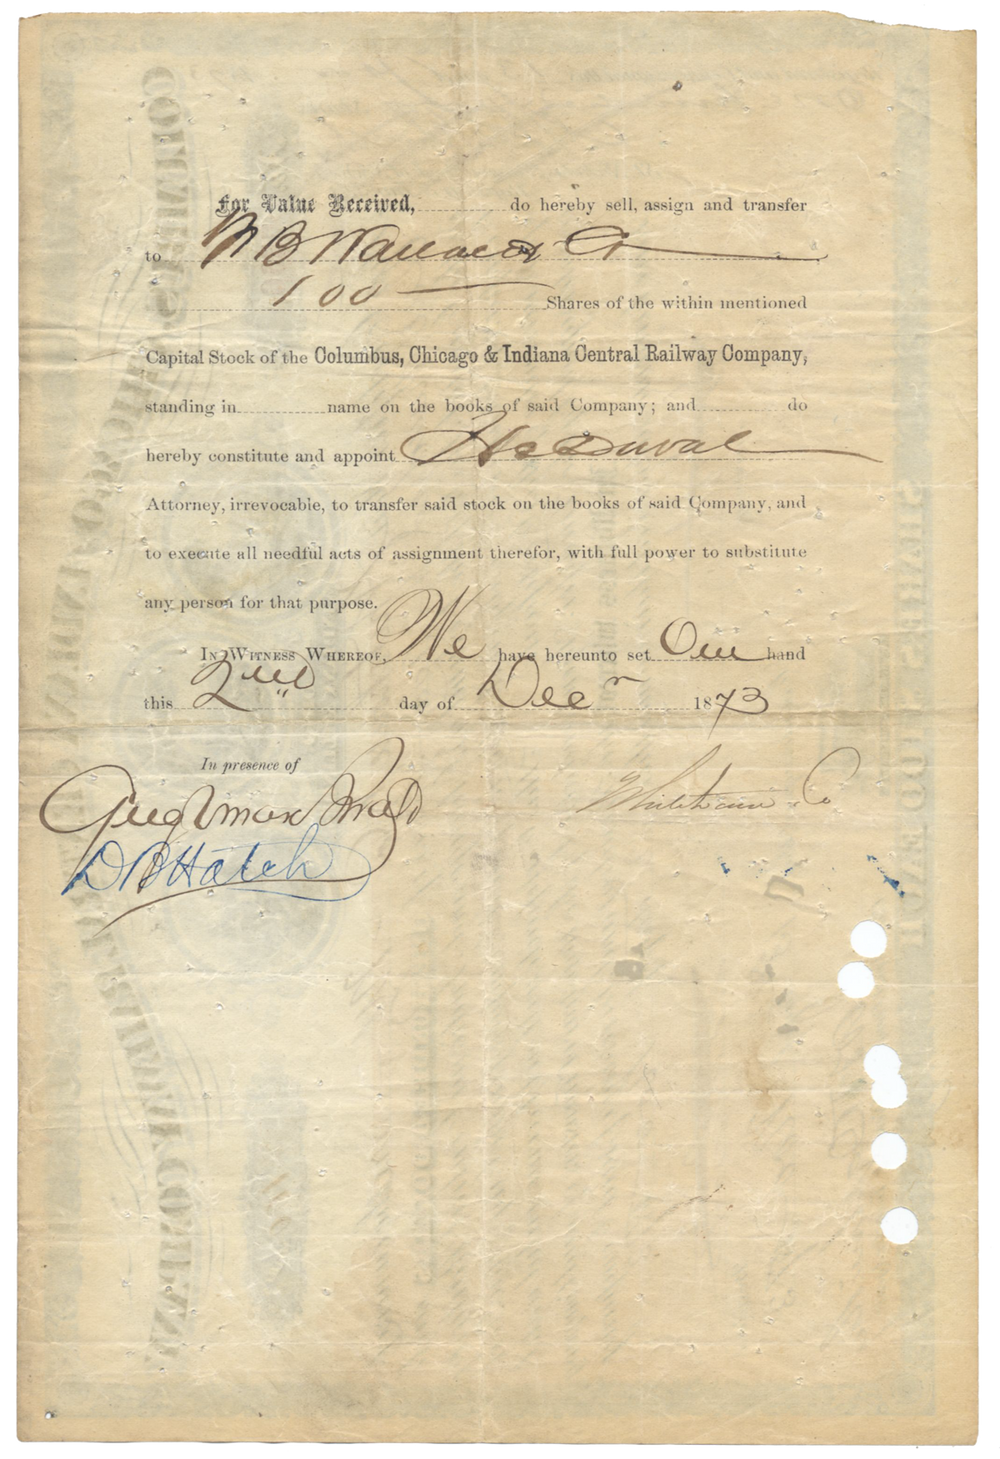 For Value Received, do hereby sell, assign and transfer
to W B Wallace & Co
100 Shares of the within mentioned
Capital Stock of the Columbus, Chicago & Indiana Central Railway Company,
standing in name on the books of said Company; and do
hereby constitute and appoint H C Duval
Attorney, irrevocable, to transfer said stock on the books of said Company, and
to execute all needful acts of assignment therefor, with full power to substitute
any person for that purpose.
In Witness Whereof, We have hereunto set Our hand
this 2nd day of Decr 1873
In presence of
Co
D B Hatch